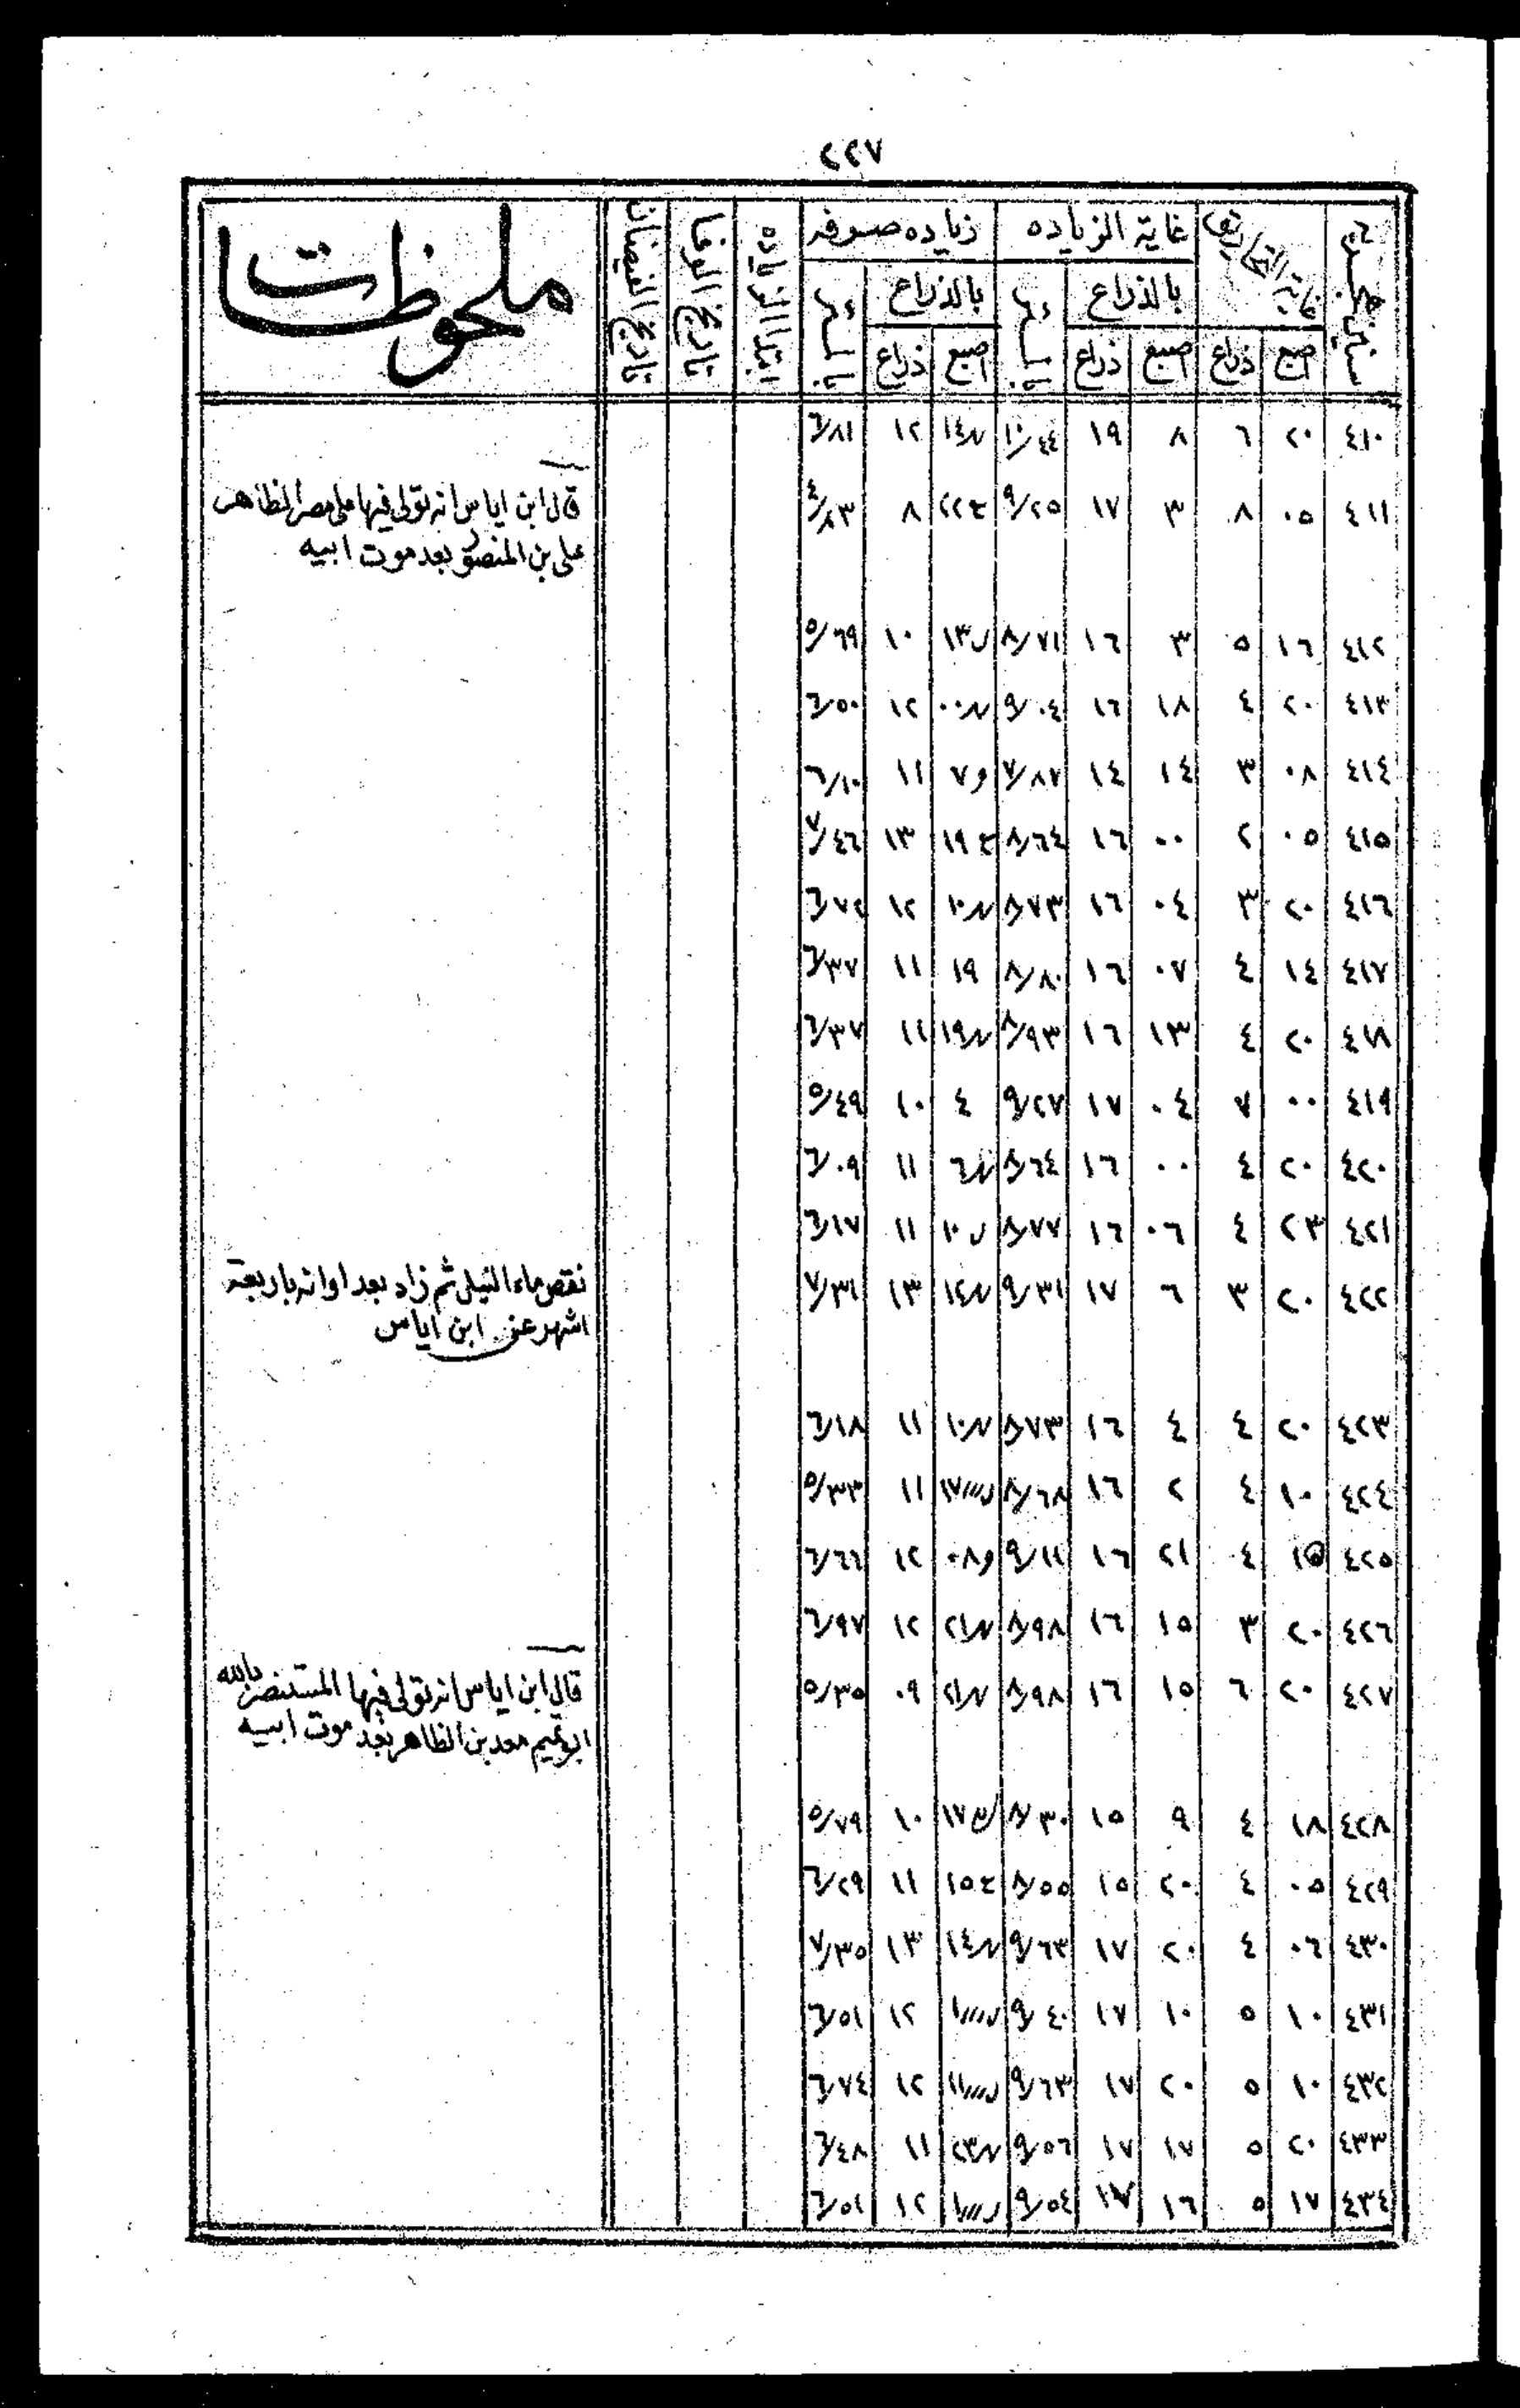 ٢٢٧
سنين هجرية | غاية التحاريق | غاية الزياده | زياده صوفه | ابتدا الزياده | تاريخ الوفا | تاريخ الفيضان | ملحوظات
بالذراع | بالذراع
اصبع | ذراع | اصبع | ذراع | اصبع | ذراع
٤١٠ | ٢٠ | ٦ | ٨ | ١٩ | ١٠/٤٤ | ١٤ | ١٢ | ٦/٨١
٤١١ | ٠٥ | ٨ | ٣ | ١٧ | ٩/٢٥ | ٢٢ | ٨ | ٤/٨٣ | قال ابن اياس انه تولى فيها على مصر الظاهر
على بن المنصور بعد موت ابيه
٤١٢ | ١٦ | ٥ | ٣ | ١٦ | ٨/٧١ | ١٣ | ١٠ | ٥/٦٩
٤١٣ | ٢٠ | ٤ | ١٨ | ١٦ | ٩/٠٤ | ٠٠ | ١٢ | ٦/٥٠
٤١٤ | ٠٨ | ٣ | ١٤ | ١٤ | ٧/٨٧ | ٧ | ١١ | ٦/١٠
٤١٥ | ٠٥ | ٢ | ٠٠ | ١٦ | ٨/٦٤ | ١٩ | ١٣ | ٧/٤٦
٤١٦ | ٢٠ | ٣ | ٠٤ | ١٦ | ٨/٧٣ | ١٠ | ١٢ | ٦/٧٢
٤١٧ | ١٤ | ٤ | ٠٧ | ١٦ | ٨/٨٠ | ١٩ | ١١ | ٦/٣٧
٤١٨ | ٢٠ | ٤ | ١٣ | ١٦ | ٨/٩٣ | ١٩ | ١١ | ٦/٣٧
٤١٩ | ٠٠ | ٧ | ٠٤ | ١٧ | ٩/٢٧ | ٤ | ١٠ | ٥/٤٩
٤٢٠ | ٢٠ | ٤ | ٠٠ | ١٦ | ٨/٦٤ | ٦ | ١١ | ٦/٠٩
٤٢١ | ٢٣ | ٤ | ٠٦ | ١٦ | ٨/٧٧ | ١٠ | ١١ | ٦/١٧
٤٢٢ | ٢٠ | ٣ | ٦ | ١٧ | ٩/٣١ | ١٤ | ١٣ | ٧/٣١ | نقص ماء النيل ثم زاد بعد اوانه باربعة
اشهر عن ابن اياس
٤٢٣ | ٢٠ | ٤ | ٤ | ١٦ | ٨/٧٣ | ١٠ | ١١ | ٦/١٨
٤٢٤ | ١٠ | ٤ | ٢ | ١٦ | ٨/٦٨ | ١٧ | ١١ | ٥/٣٣
٤٢٥ | ١٥ | ٤ | ٢١ | ١٦ | ٩/١١ | ٠٨ | ١٢ | ٦/٦٦
٤٢٦ | ٢٠ | ٣ | ١٥ | ١٦ | ٨/٩٨ | ٢١ | ١٢ | ٦/٩٧
٤٢٧ | ٢٠ | ٦ | ١٥ | ١٦ | ٨/٩٨ | ٢١ | ٠٩ | ٥/٣٥ | قال ابن اياس انه تولى فيها المستنصر بالله
ابو تميم معد بن الظاهر بعد موت ابيه
٤٢٨ | ١٨ | ٤ | ٩ | ١٥ | ٨/٣٠ | ١٧ | ١٠ | ٥/٧٩
٤٢٩ | ٠٥ | ٤ | ٢٠ | ١٥ | ٨/٥٥ | ١٥ | ١١ | ٦/٢٩
٤٣٠ | ٠٦ | ٤ | ٢٠ | ١٧ | ٩/٦٣ | ١٤ | ١٣ | ٧/٣٥
٤٣١ | ١٠ | ٥ | ١٠ | ١٧ | ٩/٤٠ | ١ | ١٢ | ٦/٥١
٤٣٢ | ١٠ | ٥ | ٢٠ | ١٧ | ٩/٦٣ | ١١ | ١٢ | ٦/٧٤
٤٣٣ | ٢٠ | ٥ | ١٧ | ١٧ | ٩/٥٦ | ٢٣ | ١١ | ٦/٤٨
٤٣٤ | ١٧ | ٥ | ١٦ | ١٧ | ٩/٥٤ | ١ | ١٢ | ٦/٥٢